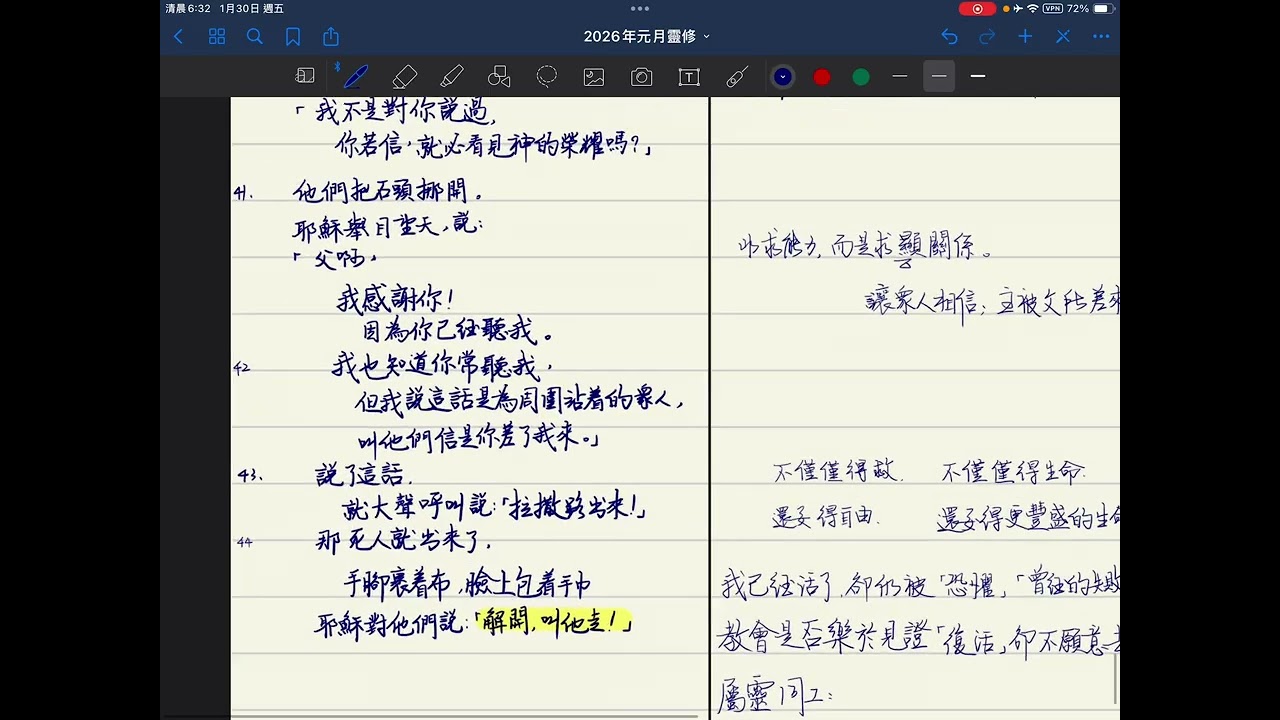 清晨6:32 1月30日 週五
VPN 72%
2026年元月靈修
「我不是對你說過,
你若信,就必看見神的榮耀嗎?」
41. 他們把石頭挪開。
耶穌舉目望天,說:
「父啊,
我感謝你!
因為你已經聽我。
42 我也知道你常聽我,
但我說這話是為周圍站着的眾人,
叫他們信是你差了我來。」
43. 說了這話.
就大聲呼叫說:「拉撒路出來!」
44 那死人就出來了.
手腳裹着布,臉上包着手巾
耶穌對他們說:「解開,叫他走!」
求能力,而是求顯關係。
讓眾人相信;主被父所差來
不僅僅得救. 不僅僅得生命.
還要得自由. 還要得更豐盛的生命
我已經活了,卻仍被「恐懼,「曾經的失敗
教會是否樂於見證「復活」卻不願意去
屬靈同工: